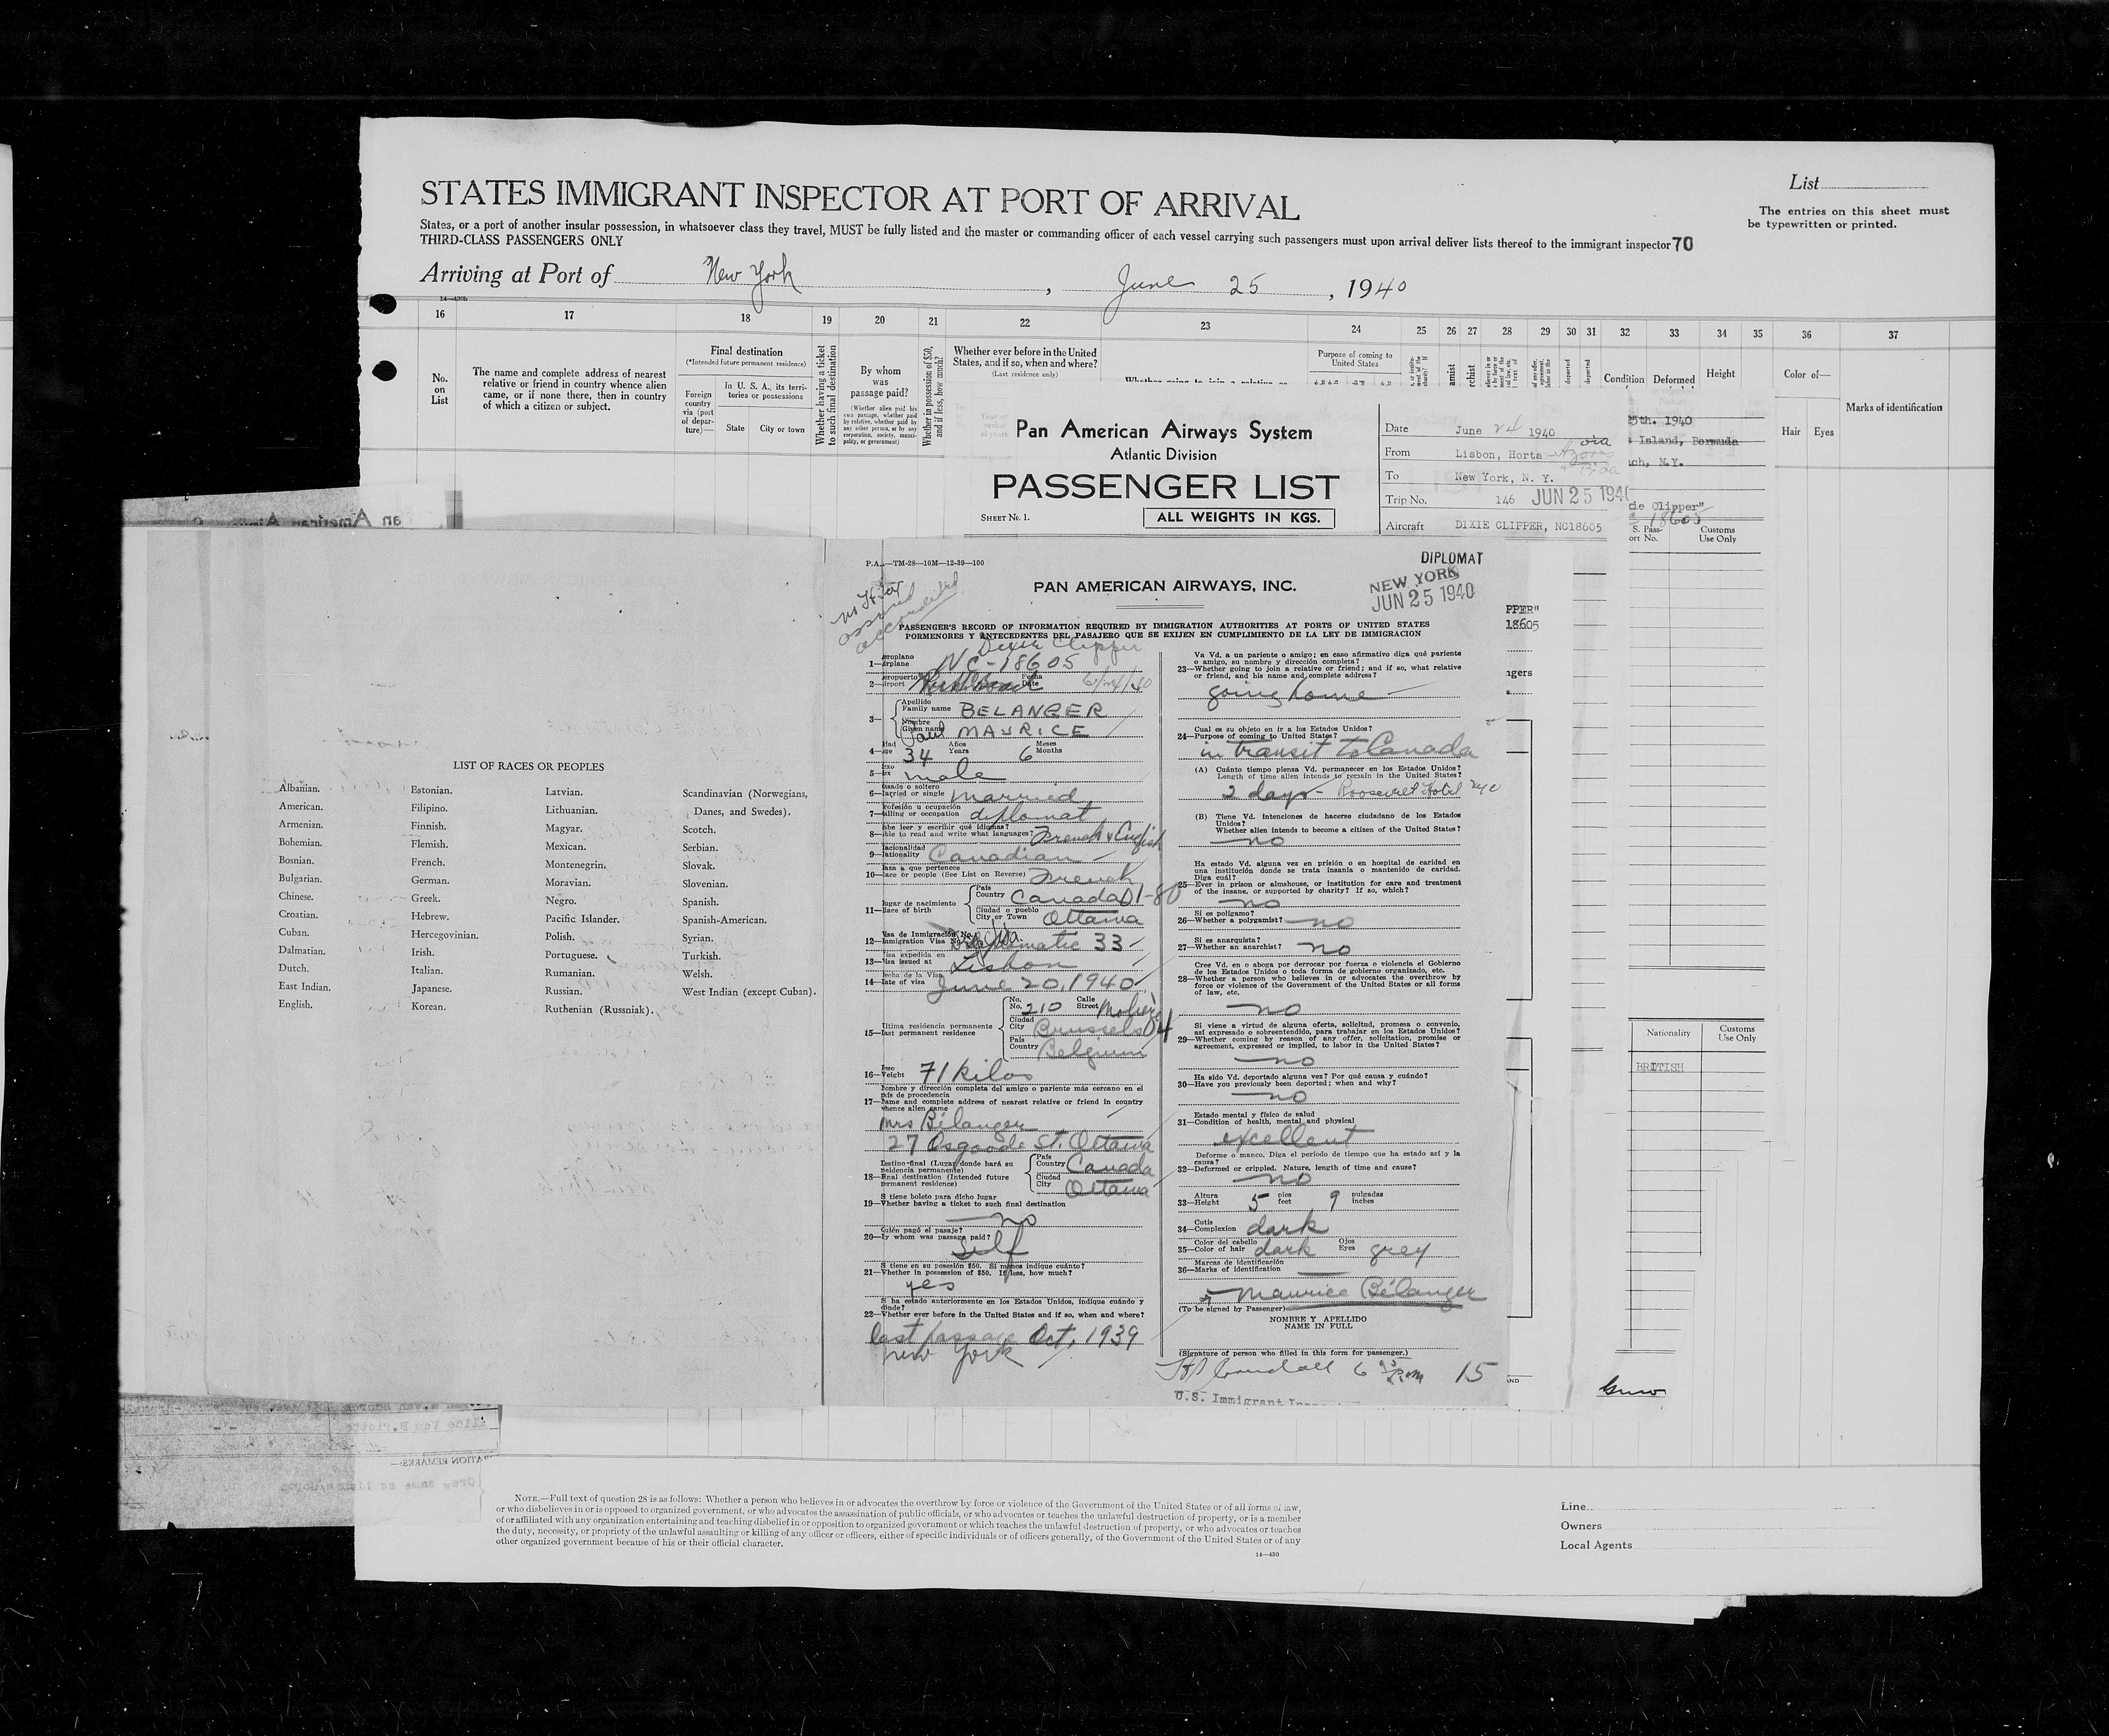 STATES IMMIGRANT INSPECTOR AT PORT OF ARRIVAL
List
The entries on this sheet must
be typewritten or printed.
States, or a port of another insular possession, in whatsoever class they travel, MUST be fully listed and the master or commanding officer of each vessel carrying such passengers must upon arrival deliver lists thereof to the immigrant inspector 70
THIRD-CLASS PASSENGERS ONLY
Arriving at Port of New York, June 25, 1940
14—430b
16 17 18 19 20 21 22 23 24 25 26 27 28 29 30 31 32 33 34 35 36 37
No.
on
List
The name and complete address of nearest
relative or friend in country whence alien
came, or if none there, then in country
of which a citizen or subject.
Final destination
(*Intended future permanent residence)
Foreign
country
via (port
of depar-
ture)—
In U. S. A., its terri-
tories or possessions
State City or town
Whether having a ticket
to such final destination
By whom
was
passage paid?
(Whether alien paid his
own passage, whether paid
by relative, whether paid by
any other person, or by any
corporation, society, munici-
pality, or government)
Whether in possession of $50,
and if less, how much?
Whether ever before in the United
States, and if so, when and where?
(Last residence only)
Whether going to join a relative or
Purpose of coming to
United States
Condition Deformed Height
Color of—
Hair Eyes
Marks of identification
Pan American Airways System
Atlantic Division
PASSENGER LIST
SHEET No. 1.
ALL WEIGHTS IN KGS.
Date June 24 1940
From Lisbon, Horta via
To New York, N. Y.
Trip No. 146 JUN 25 1940
Aircraft DIXIE CLIPPER, NC18605
25th. 1940
Island, Bermuda
ch, N.Y.
de Clipper"
18605
S. Pass-
ort No.
Customs
Use Only
PPER"
18605
ngers
Nationality
Customs
Use Only
BRITISH
LIST OF RACES OR PEOPLES
Albanian.
American.
Armenian.
Bohemian.
Bosnian.
Bulgarian.
Chinese.
Croatian.
Cuban.
Dalmatian.
Dutch.
East Indian.
English.
Estonian.
Filipino.
Finnish.
Flemish.
French.
German.
Greek.
Hebrew.
Hercegovinian.
Irish.
Italian.
Japanese.
Korean.
Latvian.
Lithuanian.
Magyar.
Mexican.
Montenegrin.
Moravian.
Negro.
Pacific Islander.
Polish.
Portuguese.
Rumanian.
Russian.
Ruthenian (Russniak).
Scandinavian (Norwegians,
Danes, and Swedes).
Scotch.
Serbian.
Slovak.
Slovenian.
Spanish.
Spanish-American.
Syrian.
Turkish.
Welsh.
West Indian (except Cuban).
P.A.—TM-28—10M—12-39—100
DIPLOMAT
NEW YORK
JUN 25 1940
PAN AMERICAN AIRWAYS, INC.
PASSENGER'S RECORD OF INFORMATION REQUIRED BY IMMIGRATION AUTHORITIES AT PORTS OF UNITED STATES
PORMENORES Y ANTECEDENTES DEL PASAJERO QUE SE EXIJEN EN CUMPLIMIENTO DE LA LEY DE IMMIGRACION
Dixie Clipper
roplano
1—irplane NC-18605
ropuerto Fecha
2—irport Date 6/24/40
Apellido
3— Family name BELANGER
Nombre
Given name Paul MAURICE
dad Años Meses
4—ge 34 Years 6 Months
exo
5—ex male
asado o soltero
6—arried or single married
rofesión u ocupación
7—alling or occupation diplomat
abe leer y escribir qué idiomas?
8—ble to read and write what languages? French & English
acionalidad
9—ationality Canadian
aza a que pertenece
10—ace or people (See List on Reverse) French
ugar de nacimiento
11—lace of birth
Pais
Country Canada 01-80
Ciudad o pueblo
City or Town Ottawa
Visa de Inmigración No.
12—Inmigration Visa No. Diplomatic 33
isa expedida en
13—isa issued at Lisbon
echa de la Visa
14—ate of visa June 20, 1940
ltima residencia permanente
15—ast permanent residence
No. Calle
No. 210 Street Molière
Ciudad
City Brussels 04
Pais
Country Belgium
eso
16—eight 71 kilos
Nombre y dirección completa del amigo o pariente más cercano en el
país de procedencia
17—ame and complete address of nearest relative or friend in country
whence alien came
Mrs Bélanger
27 Osgoode St. Ottawa
estino final (Lugar donde hará su
residencia permanente)
18—inal destination (Intended future
permanent residence)
Pais
Country Canada
Ciudad
City Ottawa
Si tiene boleto para dicho lugar
19—Whether having a ticket to such final destination
no
Quién pagó el pasaje?
20—By whom was passage paid?
Self
Si tiene en su posesión $50. Si menos indique cuánto?
21—Whether in possession of $50. If less, how much?
yes
Si ha estado anteriormente en los Estados Unidos, indique cuándo y
dónde?
22—Whether ever before in the United States and if so, when and where?
last passage Oct, 1939
New York
Va Vd. a un pariente o amigo; en caso afirmativo diga qué pariente
o amigo, su nombre y dirección completa?
23—Whether going to join a relative or friend; and if so, what relative
or friend, and his name and complete address?
going home
Cual es su objeto en ir a los Estados Unidos?
24—Purpose of coming to United States?
in transit to Canada
(A) Cuánto tiempo piensa Vd. permanecer en los Estados Unidos?
Length of time alien intends to remain in the United States?
2 days - Roosevelt Hotel NYC
(B) Tiene Vd. intenciones de hacerse ciudadano de los Estados
Unidos?
Whether alien intends to become a citizen of the United States?
no
Ha estado Vd. alguna vez en prisión o en hospital de caridad en
una institución donde se trata insania o mantenido de caridad.
Diga cuál?
25—Ever in prison or almshouse, or institution for care and treatment
of the insane, or supported by charity? If so, which?
no
Si es polígamo?
26—Whether a polygamist? no
Si es anarquista?
27—Whether an anarchist? no
Cree Vd. en o aboga por derrocar por fuerza o violencia el Gobierno
de los Estados Unidos o toda forma de gobierno organizado, etc.
28—Whether a person who believes in or advocates the overthrow by
force or violence of the Government of the United States or all forms
of law, etc.
no
Si viene a virtud de alguna oferta, solicitud, promesa o convenio,
así expresado o sobreentendido, para trabajar en los Estados Unidos?
29—Whether coming by reason of any offer, solicitation, promise or
agreement, expressed or implied, to labor in the United States?
no
Ha sido Vd. deportado alguna vez? Por qué causa y cuándo?
30—Have you previously been deported; when and why?
no
Estado mental y físico de salud
31—Condition of health, mental and physical
excellent
Deforme o manco. Diga el período de tiempo que ha estado así y la
causa?
32—Deformed or crippled. Nature, length of time and cause?
no
Altura pies pulgadas
33—Height 5 feet 9 inches
Cutis
34—Complexion dark
Color del cabello Ojos
35—Color of hair dark Eyes grey
Marcas de identificación
36—Marks of identification
Maurice Bélanger
(To be signed by Passenger)
NOMBRE Y APELLIDO
NAME IN FULL
(Signature of person who filled in this form for passenger.)
15
U.S. Immigrant
NOTE.—Full text of question 28 is as follows: Whether a person who believes in or advocates the overthrow by force or violence of the Government of the United States or of all forms of law,
or who disbelieves in or is opposed to organized government, or who advocates the assassination of public officials, or who advocates or teaches the unlawful destruction of property, or is a member
of or affiliated with any organization entertaining and teaching disbelief in or opposition to organized government or which teaches the unlawful destruction of property, or who advocates or teaches
the duty, necessity, or propriety of the unlawful assaulting or killing of any officer or officers, either of specific individuals or of officers generally, of the Government of the United States or of any
other organized government because of his or their official character.
14—430
Line
Owners
Local Agents